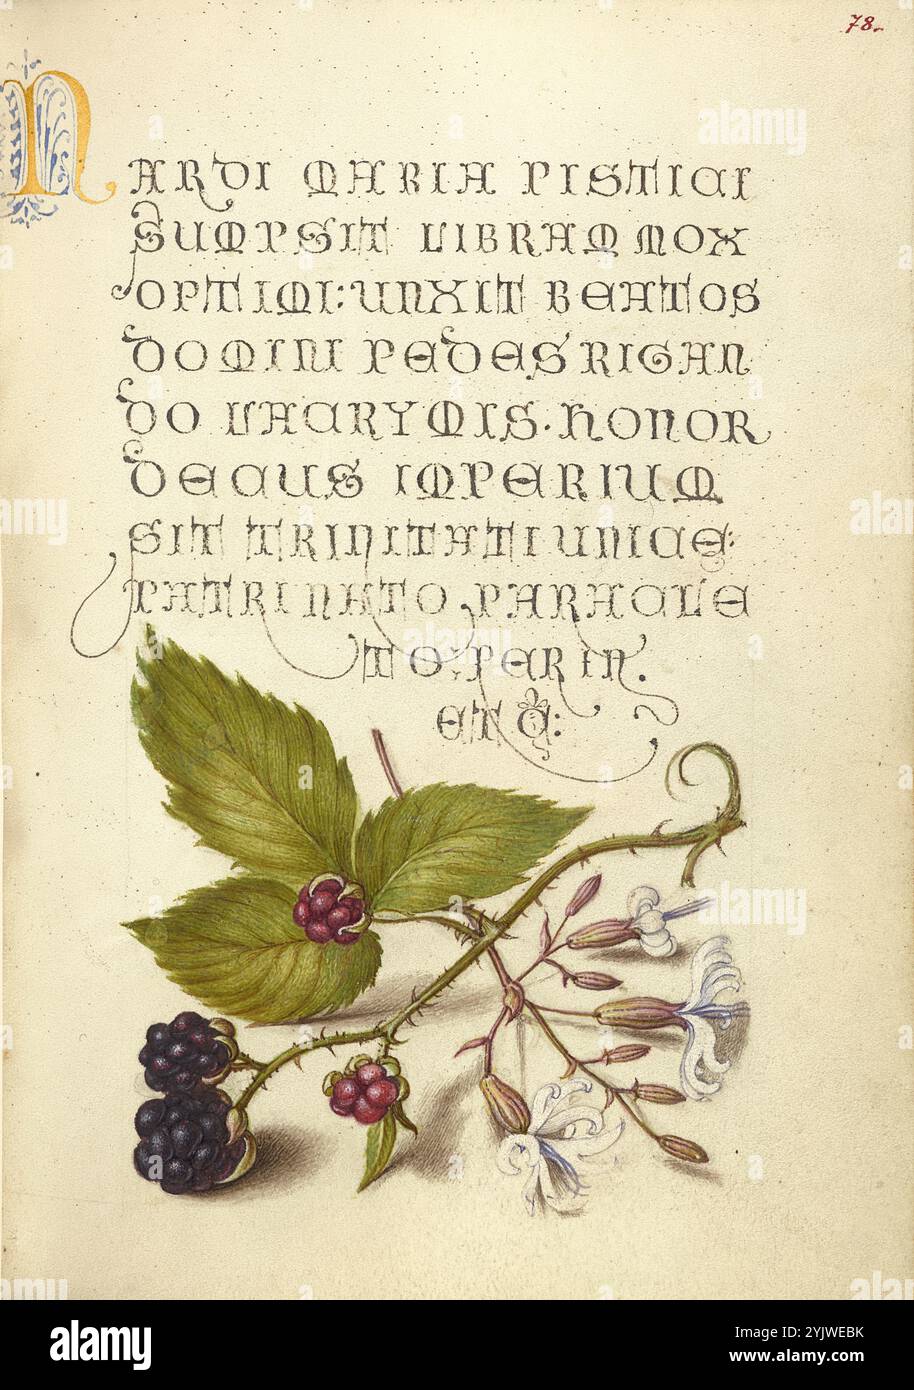 78.
NARDI MARIA PISTICI
SUMPSIT LIBRAM MOX
OPTIMI: UNXIT BEATOS
DOMINI PEDES RIGAN
DO LACRYMIS. HONOR
DECUS IMPERIUM
SIT TRINITATI UNICE:
PATRI NATO, PARACLE
TO, PER IN.
ET C:
alamy
Image ID: 2YJWEBK
www.alamy.com